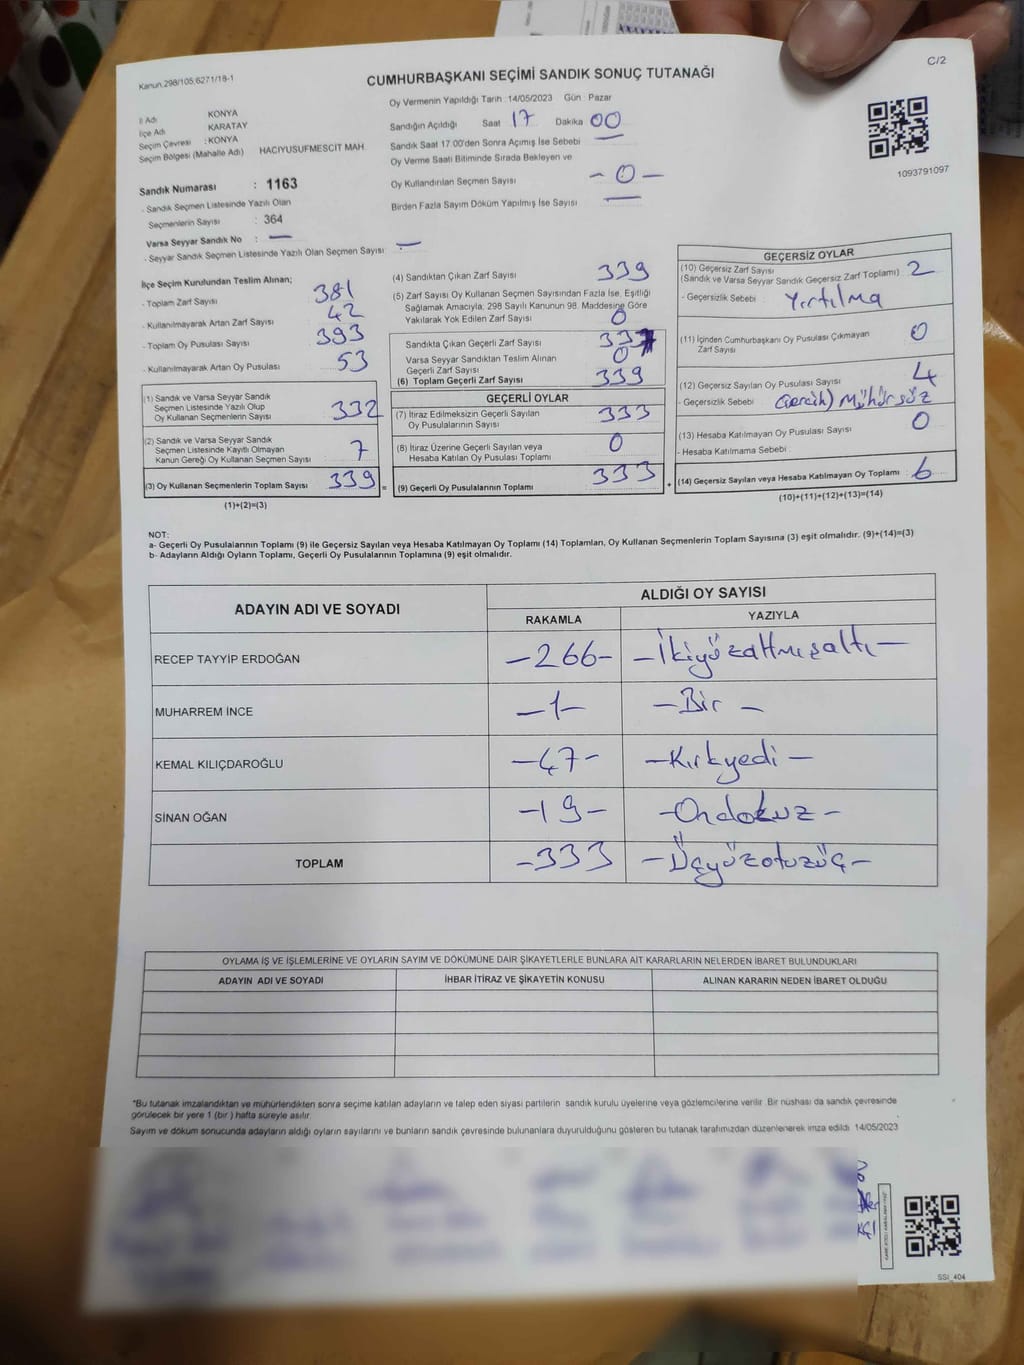 Kanun.298/105;6271/18-1
C/2
CUMHURBAŞKANI SEÇİMİ SANDIK SONUÇ TUTANAĞI
İl Adı KONYA
İlçe Adı KARATAY
Seçim Çevresi : KONYA
Seçim Bölgesi (Mahalle Adı) HACIYUSUFMESCİT MAH.
Sandık Numarası : 1163
- Sandık Seçmen Listesinde Yazılı Olan
Seçmenlerin Sayısı : 364
Varsa Seyyar Sandık No : —
- Seyyar Sandık Seçmen Listesinde Yazılı Olan Seçmen Sayısı : —
Oy Vermenin Yapıldığı Tarih : 14/05/2023 Gün : Pazar
Sandığın Açıldığı Saat 17 Dakika 00
Sandık Saat 17.00'den Sonra Açımış İse Sebebi —
Oy Verme Saati Bitiminde Sırada Bekleyen ve
Oy Kullandırılan Seçmen Sayısı – 0 –
Birden Fazla Sayım Döküm Yapılmış İse Sayısı —
1093791097
İlçe Seçim Kurulundan Teslim Alınan;
- Toplam Zarf Sayısı 381
- Kullanılmayarak Artan Zarf Sayısı 42
- Toplam Oy Pusulası Sayısı 393
- Kullanılmayarak Artan Oy Pusulası 53
(1) Sandık ve Varsa Seyyar Sandık
Seçmen Listesinde Yazılı Olup
Oy Kullanan Seçmenlerin Sayısı 332
(2) Sandık ve Varsa Seyyar Sandık
Seçmen Listesinde Kayıtlı Olmayan
Kanun Gereği Oy Kullanan Seçmen Sayısı 7
(3) Oy Kullanan Seçmenlerin Toplam Sayısı 339 =
(1)+(2)=(3)
(4) Sandıktan Çıkan Zarf Sayısı 339
(5) Zarf Sayısı Oy Kullanan Seçmen Sayısından Fazla İse, Eşitliği
Sağlamak Amacıyla, 298 Sayılı Kanunun 98. Maddesine Göre
Yakılarak Yok Edilen Zarf Sayısı 0
Sandıkta Çıkan Geçerli Zarf Sayısı 337
Varsa Seyyar Sandıktan Teslim Alınan
Geçerli Zarf Sayısı 0
(6) Toplam Geçerli Zarf Sayısı 339
GEÇERLİ OYLAR
(7) İtiraz Edilmeksizin Geçerli Sayılan
Oy Pusulalarının Sayısı 333
(8) İtiraz Üzerine Geçerli Sayılan veya
Hesaba Katılan Oy Pusulası Toplamı 0
(9) Geçerli Oy Pusulalarının Toplamı 333 +
GEÇERSİZ OYLAR
(10) Geçersiz Zarf Sayısı
(Sandık ve Varsa Seyyar Sandık Geçersiz Zarf Toplamı) 2
- Geçersizlik Sebebi : Yırtılma
(11) İçinden Cumhurbaşkanı Oy Pusulası Çıkmayan
Zarf Sayısı 0
(12) Geçersiz Sayılan Oy Pusulası Sayısı 4
- Geçersizlik Sebebi : (Tercih) Mühürsüz
(13) Hesaba Katılmayan Oy Pusulası Sayısı 0
- Hesaba Katılmama Sebebi :
(14) Geçersiz Sayılan veya Hesaba Katılmayan Oy Toplamı : 6
(10)+(11)+(12)+(13)=(14)
NOT:
a- Geçerli Oy Pusulalarının Toplamı (9) ile Geçersiz Sayılan veya Hesaba Katılmayan Oy Toplamı (14) Toplamları, Oy Kullanan Seçmenlerin Toplam Sayısına (3) eşit olmalıdır. (9)+(14)=(3)
b- Adayların Aldığı Oyların Toplamı, Geçerli Oy Pusulalarının Toplamına (9) eşit olmalıdır.
ADAYIN ADI VE SOYADI ALDIĞI OY SAYISI
RAKAMLA YAZIYLA
RECEP TAYYİP ERDOĞAN –266– –İkiyüzaltmışaltı–
MUHARREM İNCE –1– –Bir –
KEMAL KILIÇDAROĞLU –47– –Kırkyedi –
SİNAN OĞAN –19– –Ondokuz –
TOPLAM –333 –Üçyüzotuzüç–
OYLAMA İŞ VE İŞLEMLERİNE VE OYLARIN SAYIM VE DÖKÜMÜNE DAİR ŞİKAYETLERLE BUNLARA AİT KARARLARIN NELERDEN İBARET BULUNDUKLARI
ADAYIN ADI VE SOYADI İHBAR İTİRAZ VE ŞİKAYETİN KONUSU ALINAN KARARIN NEDEN İBARET OLDUĞU
*Bu tutanak imzalandıktan ve mühürlendikten sonra seçime katılan adayların ve talep eden siyasi partilerin sandık kurulu üyelerine veya gözlemcilerine verilir. Bir nüshası da sandık çevresinde
görülecek bir yere 1 (bir ) hafta süreyle asılır.
Sayım ve döküm sonucunda adayların aldığı oyların sayılarını ve bunların sandık çevresinde bulunanlara duyurulduğunu gösteren bu tutanak tarafımızdan düzenlenerek imza edildi. 14/05/2023
SSI_404